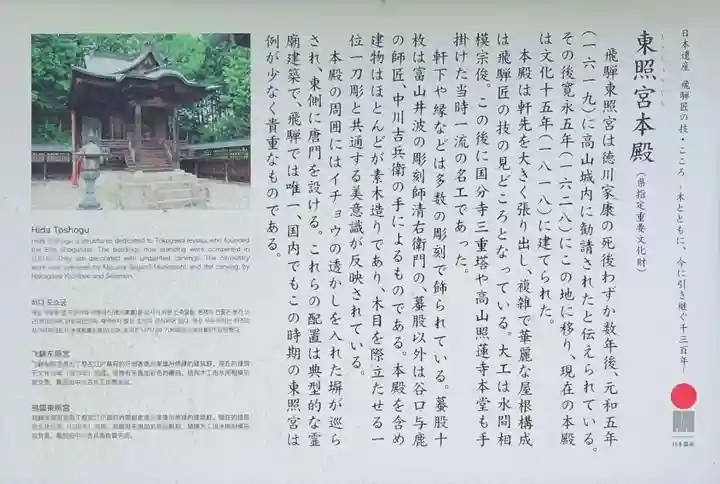 日本遺産 飛騨匠の技・こころ -木とともに、今に引き継ぐ千三百年-
東照宮本殿 (県指定重要文化財)
飛騨東照宮は徳川家康の死後わずか数年後、元和五年
(一六一九)に高山城内に勧請されたと伝えられている。
その後寛永五年(一六二八)にこの地に移り、現在の本殿
は文化十五年(一八一八)に建てられた。
本殿は軒先を大きく張り出し、複雑で華麗な屋根構成
は飛騨匠の技の見どころとなっている。大工は水間相
模宗俊。この後に国分寺三重塔や高山照蓮寺本堂も手
掛けた当時一流の名工であった。
軒下や縁などは多数の彫刻で飾られている。蟇股十
枚は富山井波の彫刻師清右衛門の、蟇股以外は谷口与鹿
の師匠、中川吉兵衛の手によるものである。本殿を含め
建物はほとんどが素木造りであり、木目を際立たせる一
位一刀彫と共通する美意識が反映されている。
本殿の周囲にはイチョウの透かしを入れた塀が巡ら
され、東側に唐門を設ける。これらの配置は典型的な霊
廟建築で、飛騨では唯一、国内でもこの時期の東照宮は
例が少なく貴重なものである。
Hida Toshogu
Hida Toshogu is structures dedicated to Tokugawa Ieyasu, who founded
the Edo shogunate. The buildings now standing were completed in
They are decorated with unpainted carvings. The carpentry
work was overseen by Mizuma Sagami Munetoshi, and the carving by
Nakagawa Kichibee and Seiemon.
히다 도쇼궁
飞驒东照宫
飛驒東照宮
日本遺産